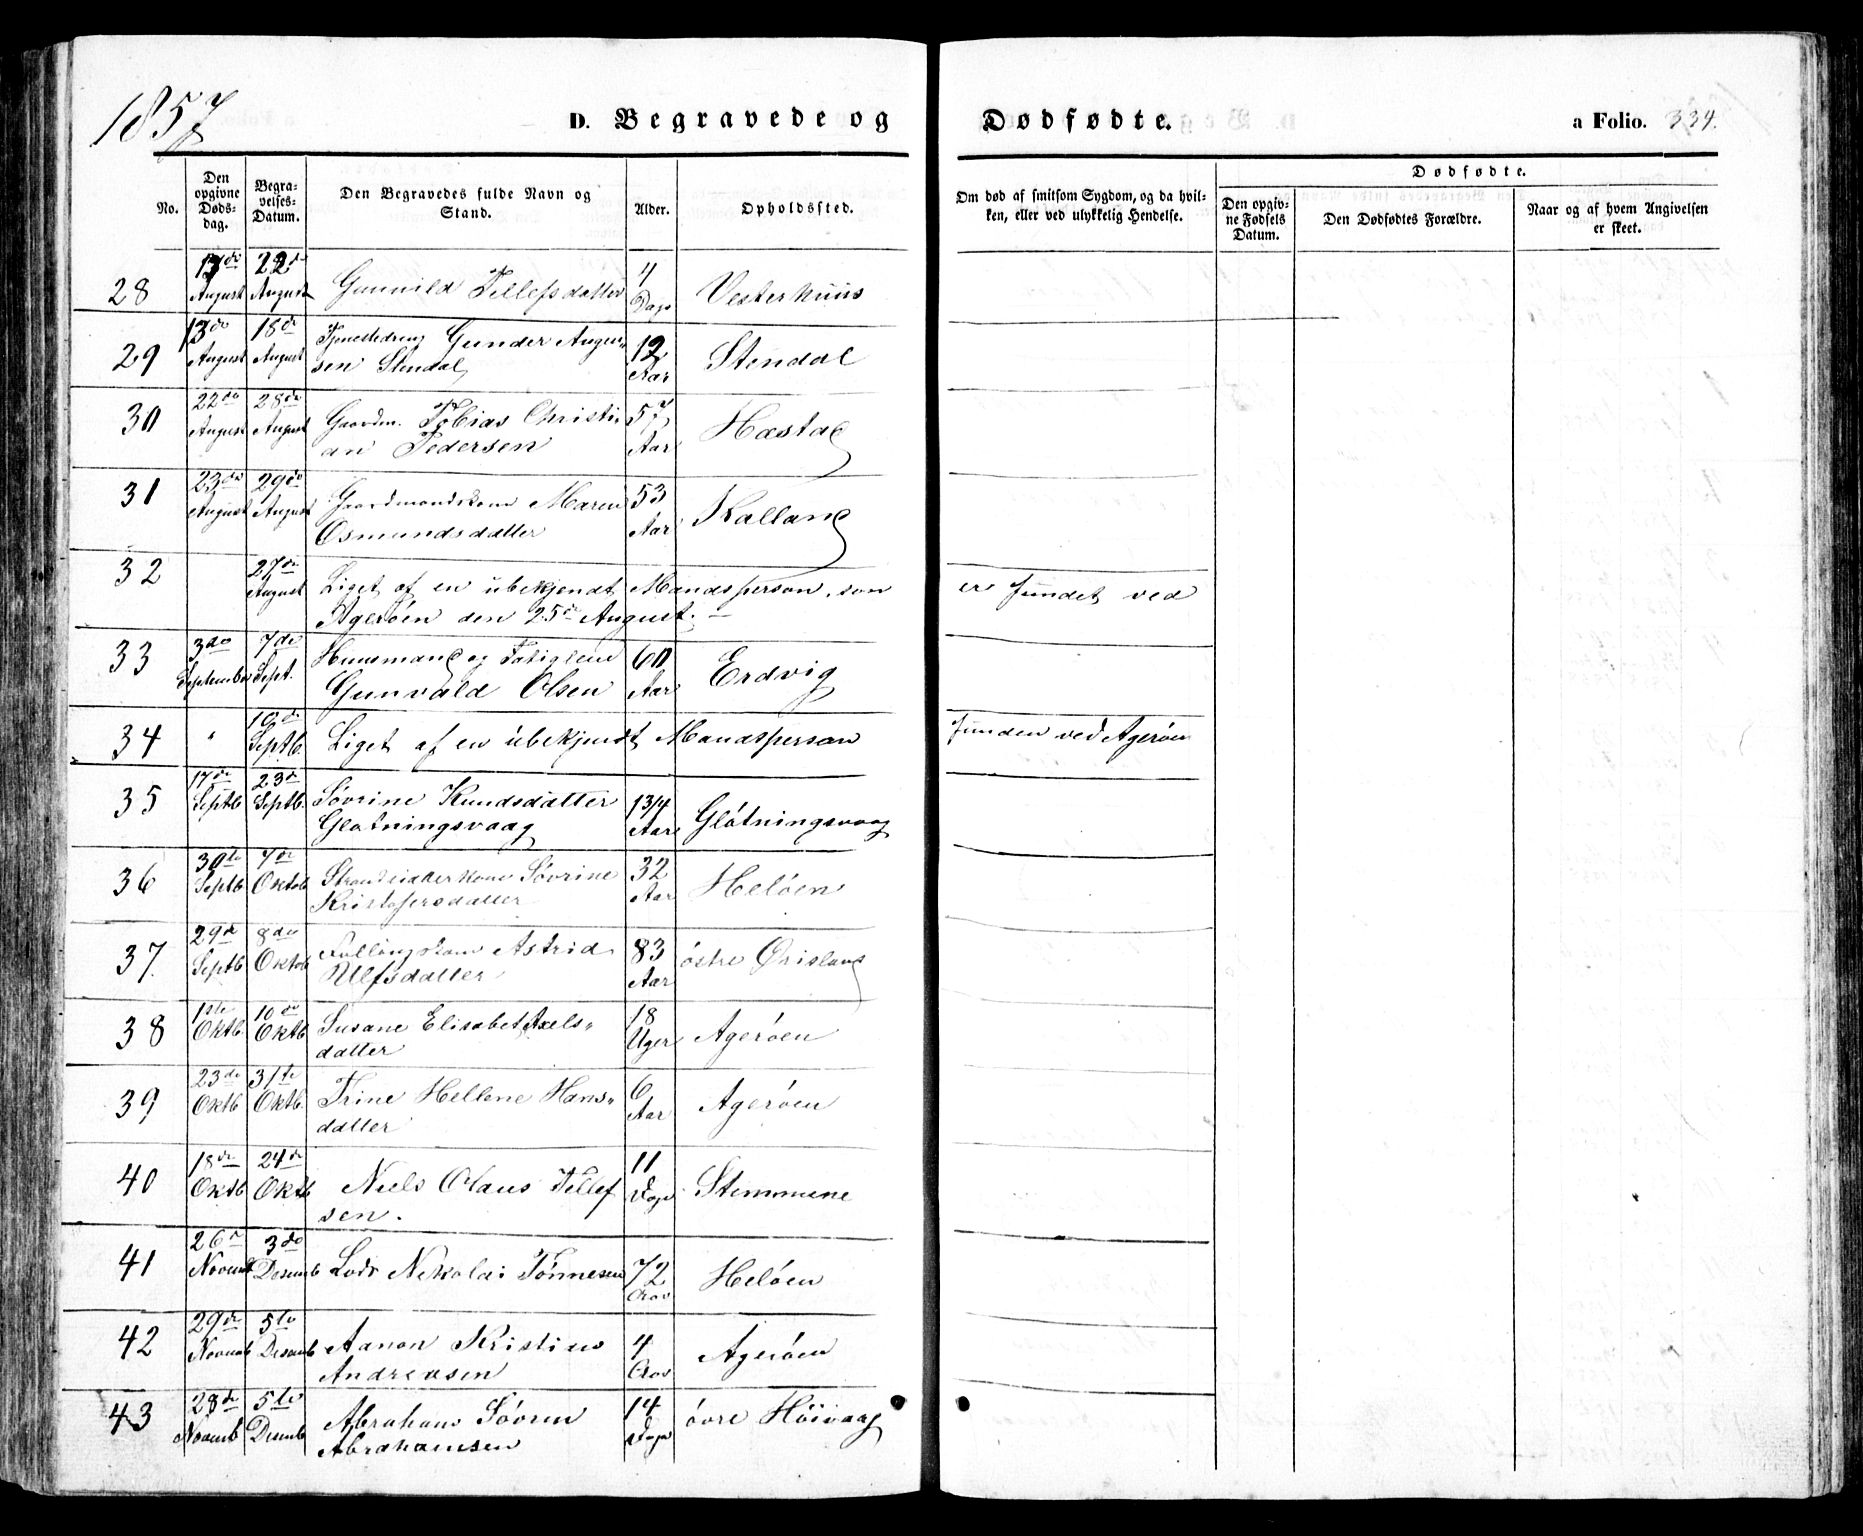 1857
D. Begravede og Dødfødte.
a Folio. 334.
No.
Den opgivne Døds-dag.
Begra-velses-Datum.
Den Begravedes fulde Navn og Stand.
Alder.
Opholdssted.
Om død af smitsom Sygdom, og da hvil-
ken, eller ved ulykkelig Hendelse.
Dødfødte.
Den opgiv-ne Fødsels Datum.
Den Dødfødtes Forældre.
Naar og af hvem Angivelsen er skeet.
28 August 22de August Gunnild Tellefsdatter 4 Dage Vesterhuus
29 13de August 18de August Tjenestedreng Gunder Angun-
sen Stendal 12 Aar Stendal
30 22de August 28de August Gaardm. Tobias Christi-
an Pedersen 57 Aar Hæstad
31 23de August 29de August Gaardmandskone Maren
Osmundsdatter 53 Aar Kalland
32 27de August Liget af en ubekjendt Mandsperson, som er fundet ved
Agerøen den 25de August. —
33 3de September 7de Sept. Huusmand og Fatiglem
Gunvald Olsen 60 Aar Erdvig
34 " 10de Septb. Liget af en übekjendt Mandsperson funden ved Agerøen
35 17de Septb 23de Septb. Søvrine Knudsdatter
Gløtningsvaag 13/4 Aar Gløtningsvaag
36 30te Septb 7de Oktob Strandsidderkone Søvrine
Kristofersdatter 32 Aar Heløen
37 29de Septb 8de Oktob Astrid
Ulfsdatter 83 Aar østre Ørisland
38 1ste Oktb. 10de Oktb Susane Elisabet Axels-
datter 18 Uger Agerøen
39 23de Oktb 31te Oktb. Trine Hellene Hans-
datter 6 Aar Agerøen
40 18de Oktb 24de Oktb Niels Olaus Tellef
sen. 11 Dage Stemmene
41 26de Novemb 3de Desemb Lods Nikolai Tønnesen 72 Aar Heløen
42 29de Novemb 5te Desemb Aanon Kristian
Andreasen 4 Aar Agerøen
43 28de Novemb 5te Desemb Abraham Søvren
Abrahamsen 14 Dage øvre Høivaag